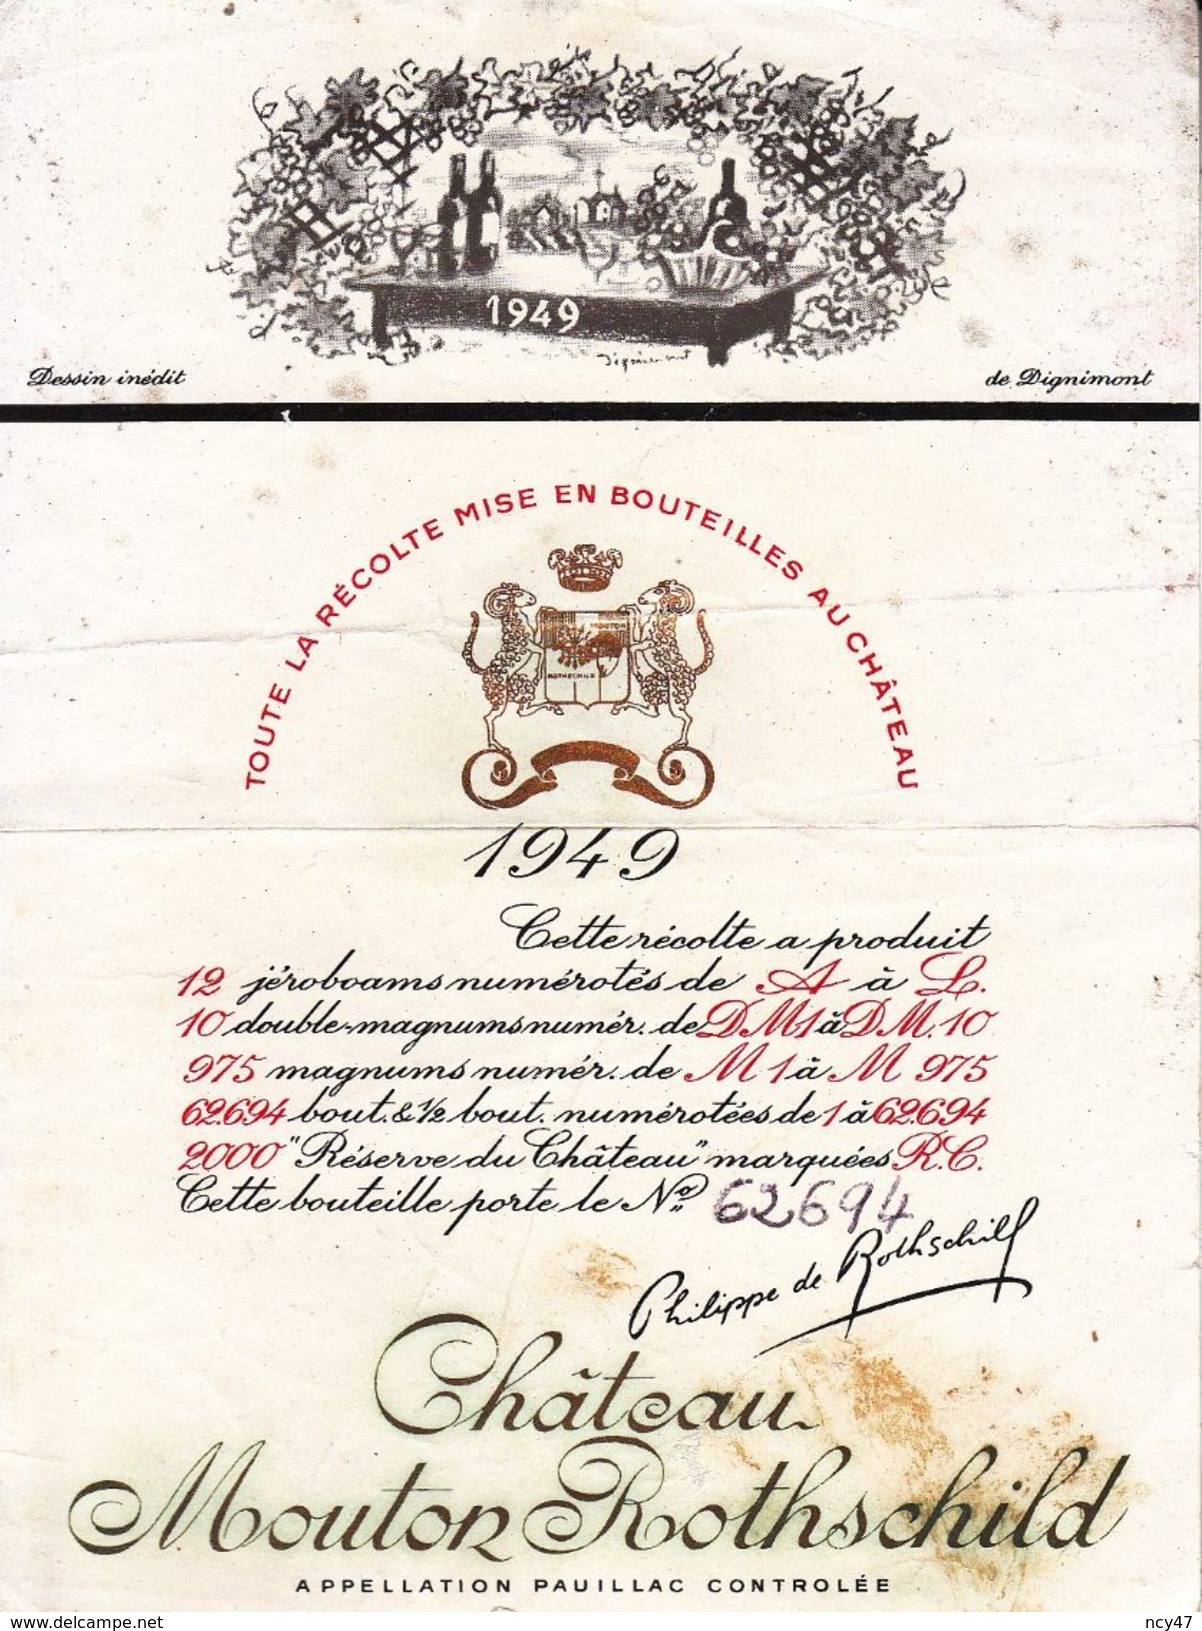 1949
Dignimont
Dessin inédit
de Dignimont
TOUTE LA RÉCOLTE MISE EN BOUTEILLES AU CHÂTEAU
MOUTON
ROTHSCHILD
1949
Cette récolte a produit
12 jéroboams numérotés de A à L.
10 double-magnums numér. de DM1 à DM.10
975 magnums numér. de M 1 à M 975
62.694 bout. & ½ bout. numérotées de 1 à 62.694
2000 "Réserve du Château" marquées R.C.
Cette bouteille porte le Nº 62694
Philippe de Rothschild
Château
Mouton Rothschild
APPELLATION PAUILLAC CONTROLÉE
www.delcampe.net
ncy47